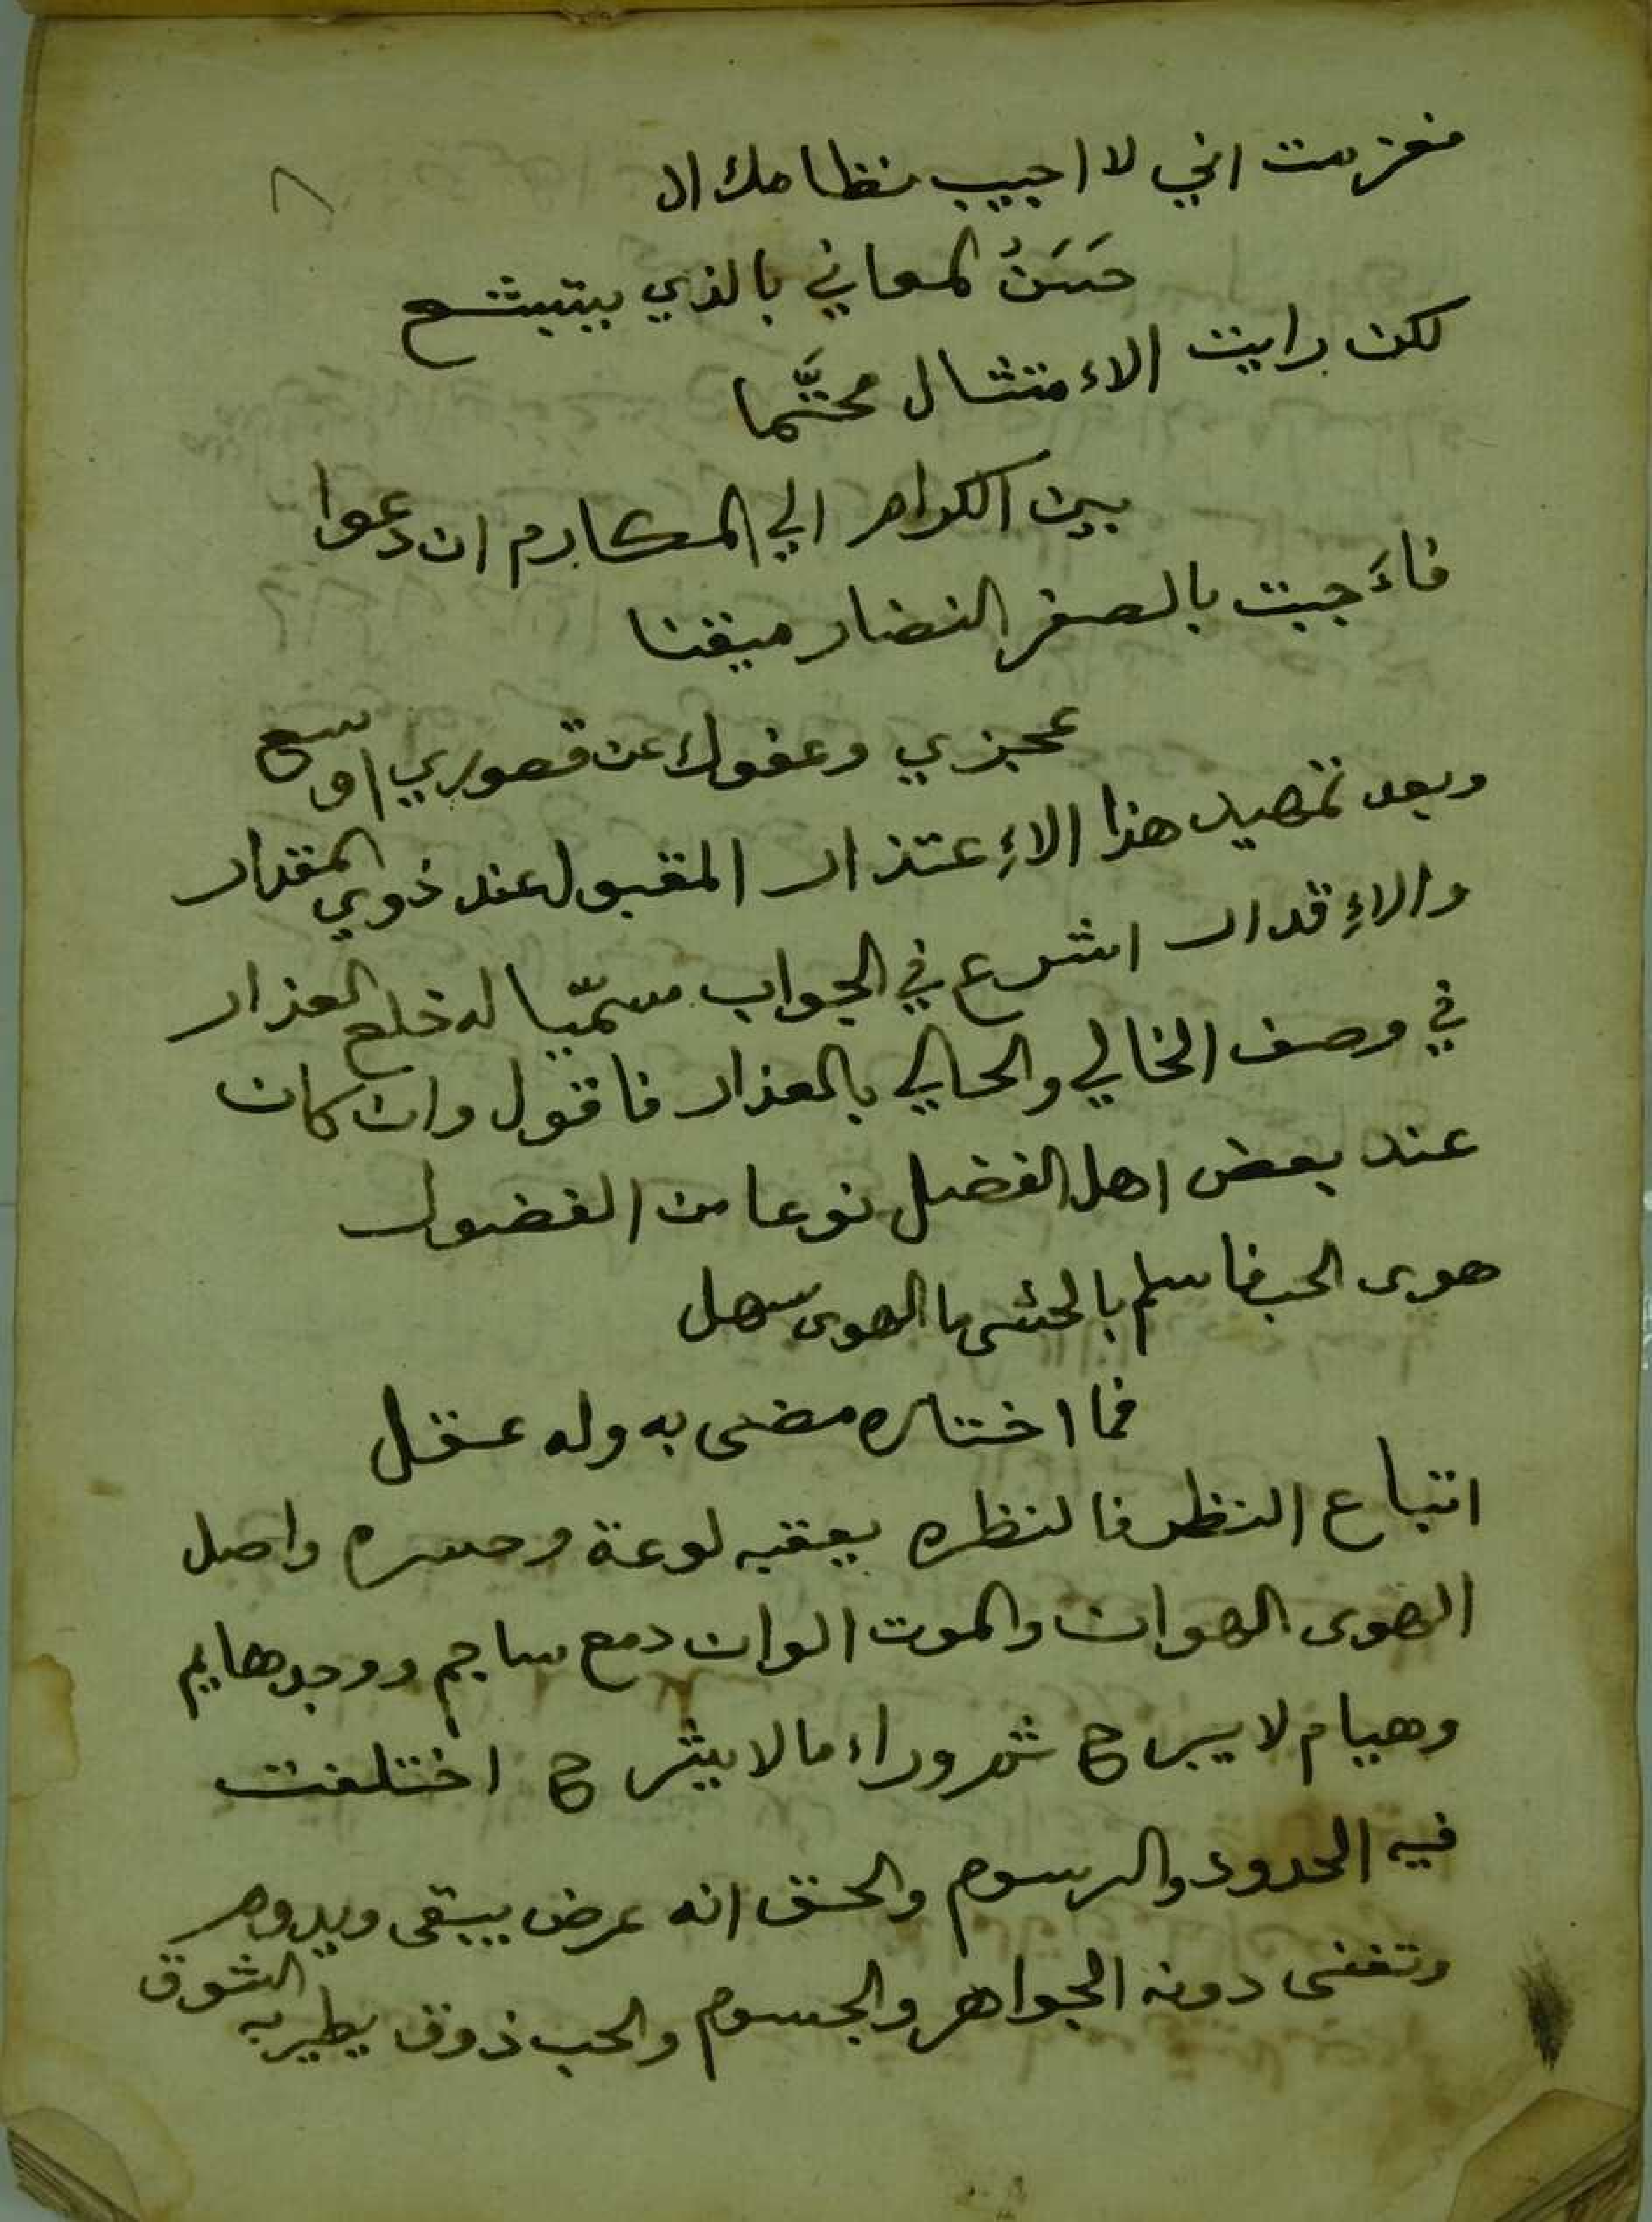 ٨
فعزمت اني لا اجيب نظامك ال
حَسَنُ المعاني بالذي يستبشع
لكن رايت الاءمتثال محتَّما
بين الكرام الي المكارم ان دعوا
فاءَجبت بالصفر النضار ميقنا
عجزي وعفوك عن قصوري اوسع
وبعد تمهيد هذا الاءِعتذار المقبول عند ذوي المقدار
والاءِقدار اشرع في الجواب مسمّيا له خلع العذار
في وصف الخالي والحالي بالعذار فاقول وان كان
عند بعض اهل الفضل نوعا من الفضول
هوى الحب فاسلم بالحشى ما الهوى سهل
فما اختاره مضنى به وله عقل
اتباع النظر فالنظره يعقبه لوعة وحسره واصل
الهوى الهوان والموت الوان دمع ساجم ووجد هايم
وهيام لا يبرح ثم وراء ما لا يشرح اختلفت
فيه الحدود والرسوم والحق انه عرض يبقى ويدوم
وتفنى دونه الجواهر والجسوم والحب ذوق يطير به الشوق